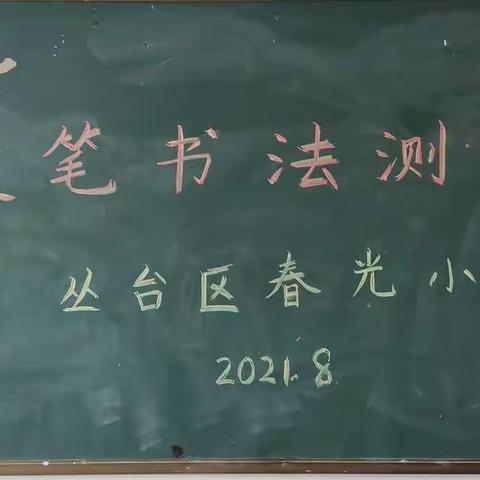 笔书法测
丛台区春光小
2021.8